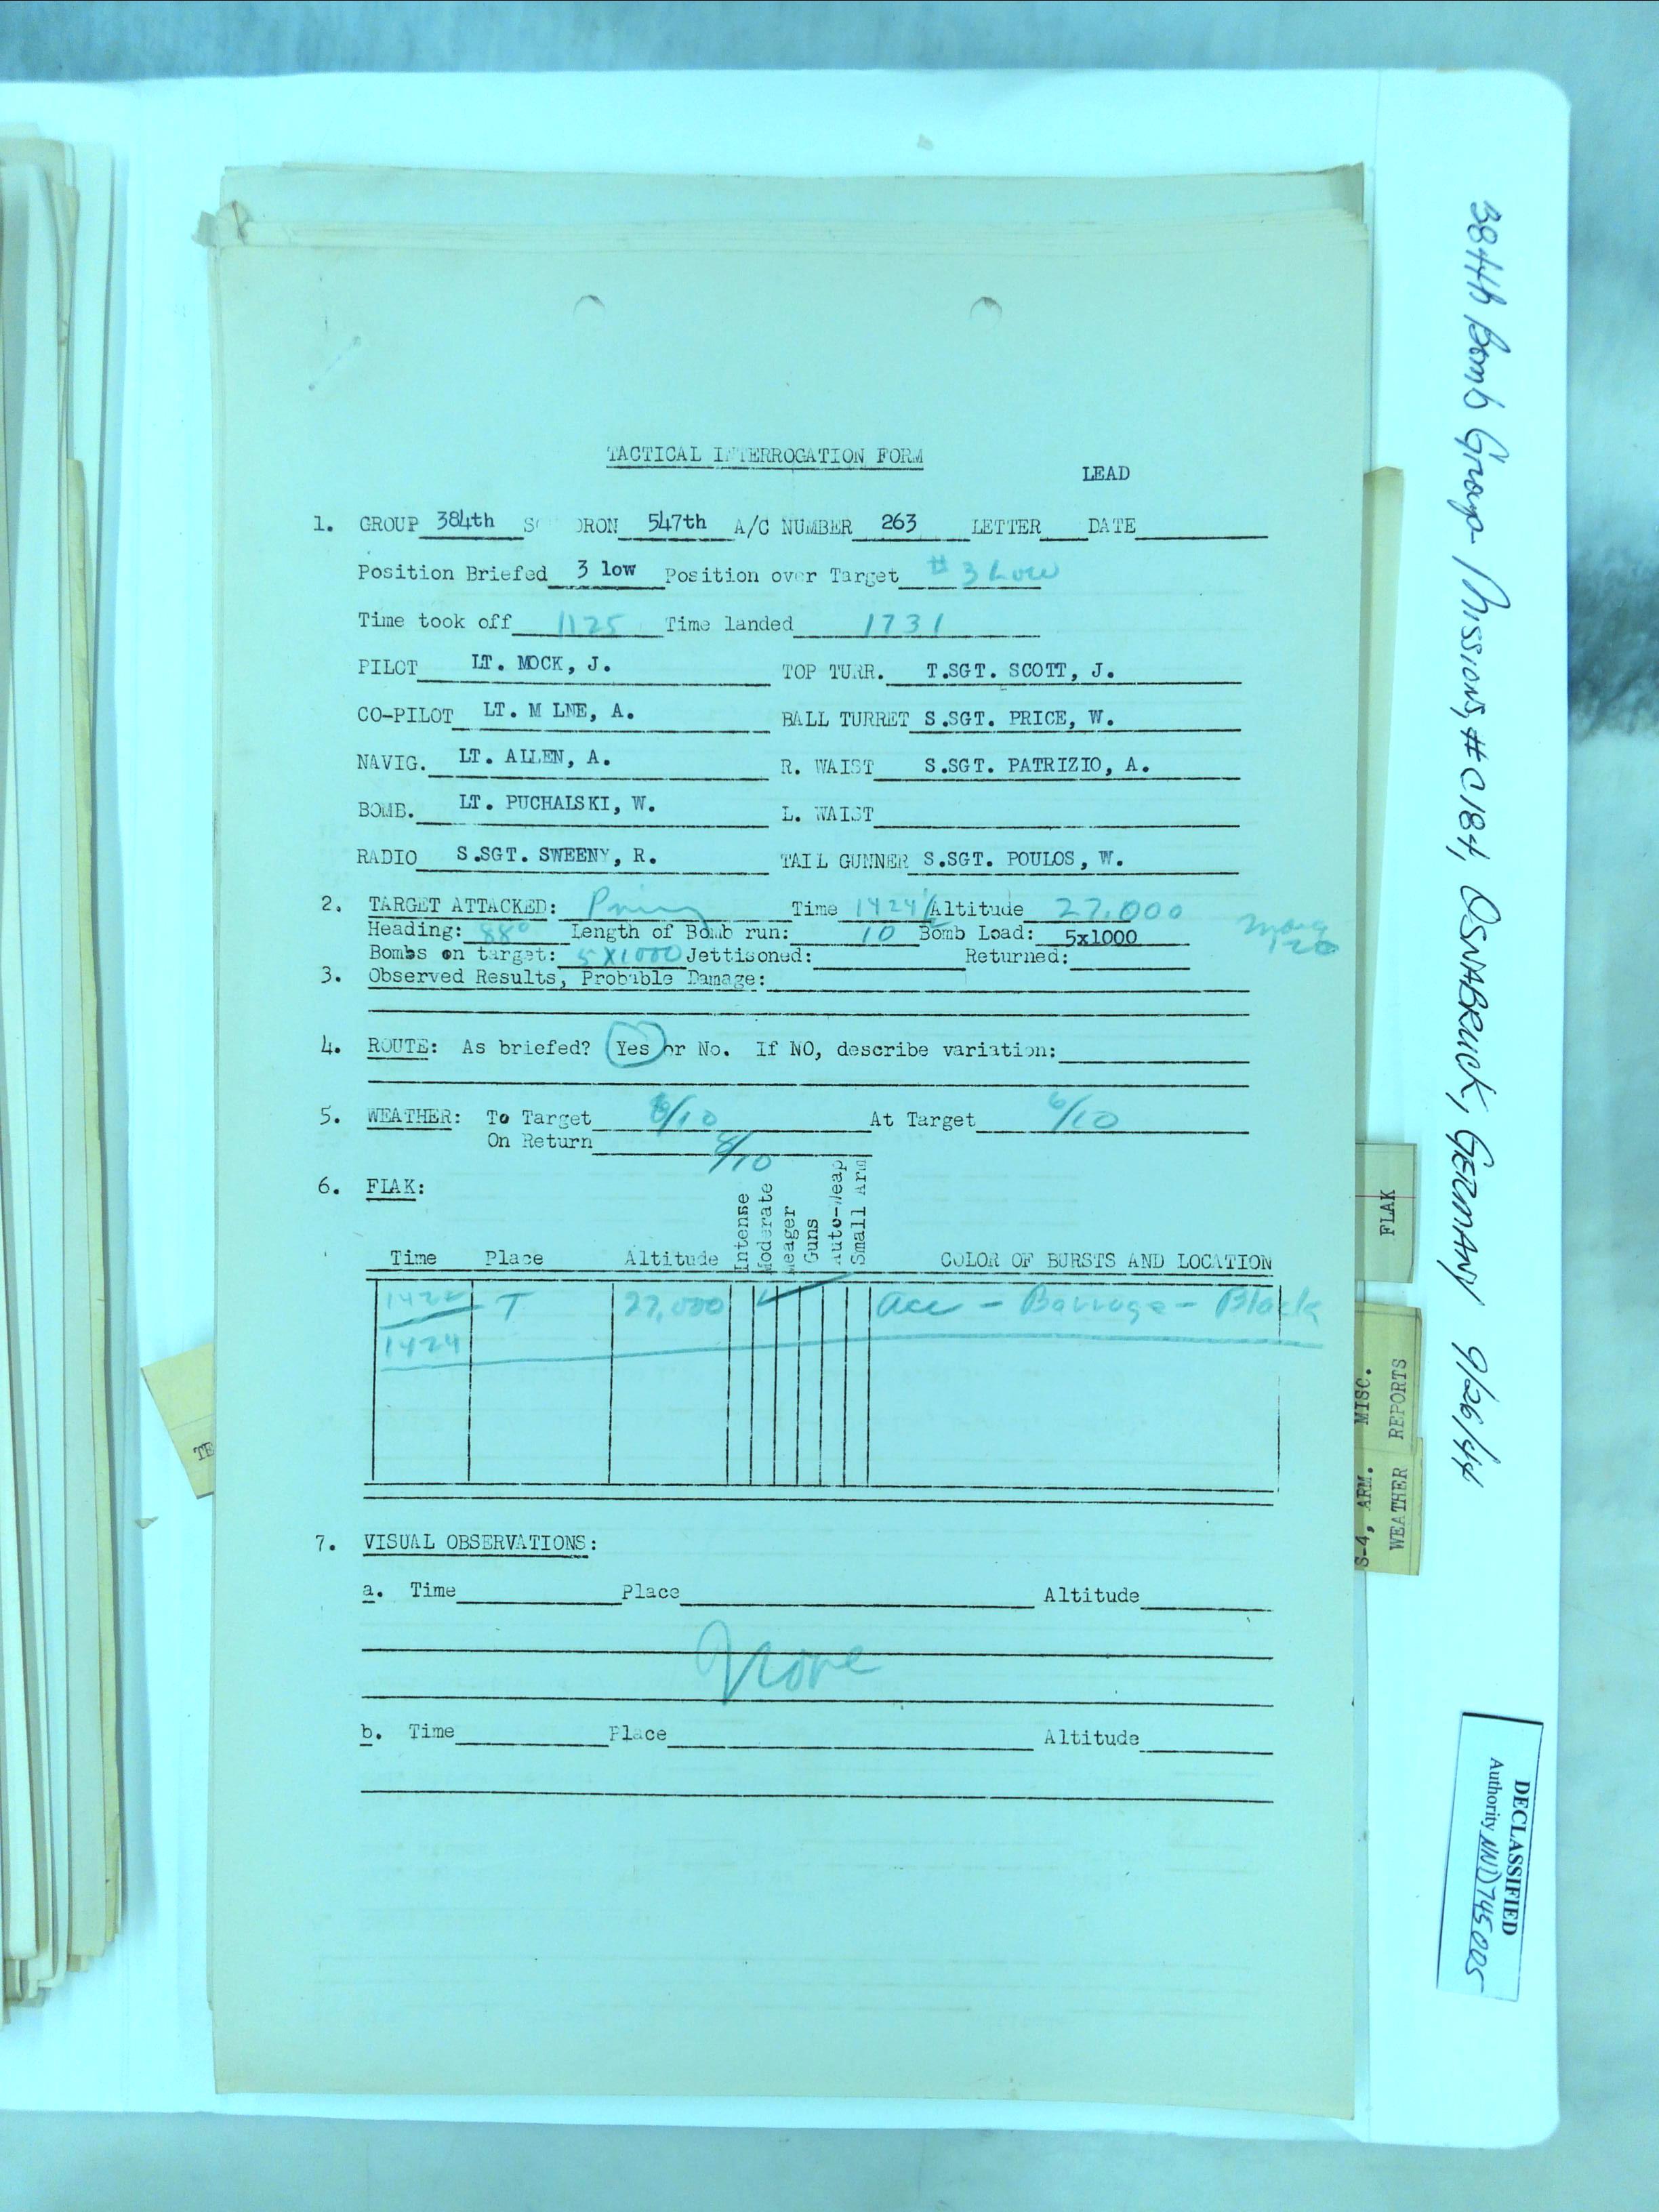 TACTICAL INTERROGATION FORM
LEAD
1. GROUP 384th SQ DRON 547th A/C NUMBER 263 LETTER DATE
Position Briefed 3 low Position over Target #3 Low
Time took off 1125 Time landed 1731
PILOT LT. MOCK, J. TOP TURR. T.SGT. SCOTT, J.
CO-PILOT LT. M LNE, A. BALL TURRET S.SGT. PRICE, W.
NAVIG. LT. ALLEN, A. R. WAIST S.SGT. PATRIZIO, A.
BOMB. LT. PUCHALSKI, W. L. WAIST
RADIO S.SGT. SWEENY, R. TAIL GUNNER S.SGT. POULOS, W.
2. TARGET ATTACKED: Time 1424½ Altitude 27,000
Heading: 88° Length of Bomb run: 10 Bomb Load: 5x1000
Bombs on target: 5x1000 Jettisoned: Returned:
3. Observed Results, Probable Damage:
4. ROUTE: As briefed? Yes or No. If NO, describe variation:
5. WEATHER: To Target /10 At Target 6/10
On Return 8/10
6. FLAK:
Time Place Altitude Intense Moderate Meager Guns Auto-Weap Small Arm COLOR OF BURSTS AND LOCATION
1422 T 27,000 ✓ Acc - Barrage - Black
1424
7. VISUAL OBSERVATIONS:
a. Time Place Altitude
None
b. Time Place Altitude
384th Bomb Group Missions, #C184, OSNABRUCK, GERMANY 9/26/44
FLAK
S-4, ARM. MISC.
WEATHER REPORTS
TE
DECLASSIFIED
Authority NND745005